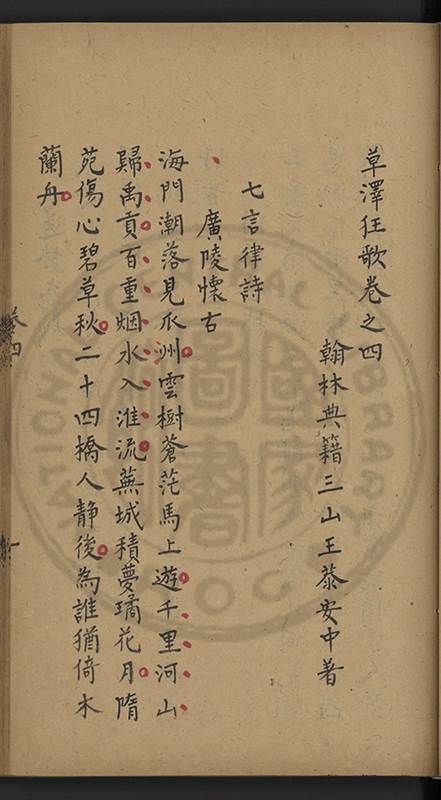 草澤狂歌卷之四
翰林典籍三山王恭安中著
七言律詩
廣陵懷古
海門潮落見瓜洲雲樹蒼茫馬上遊千里河山
歸禹貢百重烟水入淮流蕪城積夢璚花月隋
苑傷心碧草秋二十四橋人静後為誰猶倚木
蘭舟
卷四